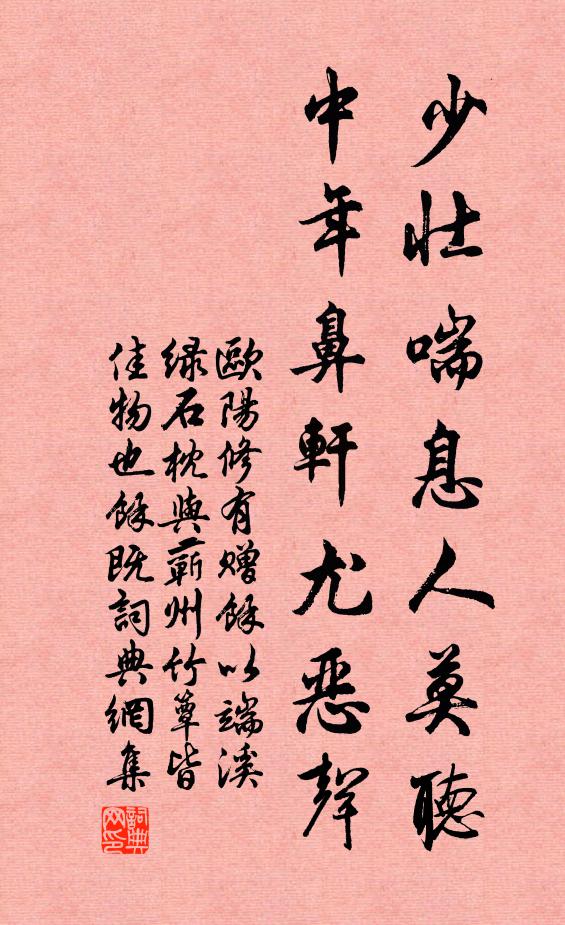 少壯喘息人莫聽
中年鼻軒尤惡聲
歐陽修有赠餘以端溪
绿石枕與蕲州竹簟皆
佳物也餘既詞典網集
詞典网印